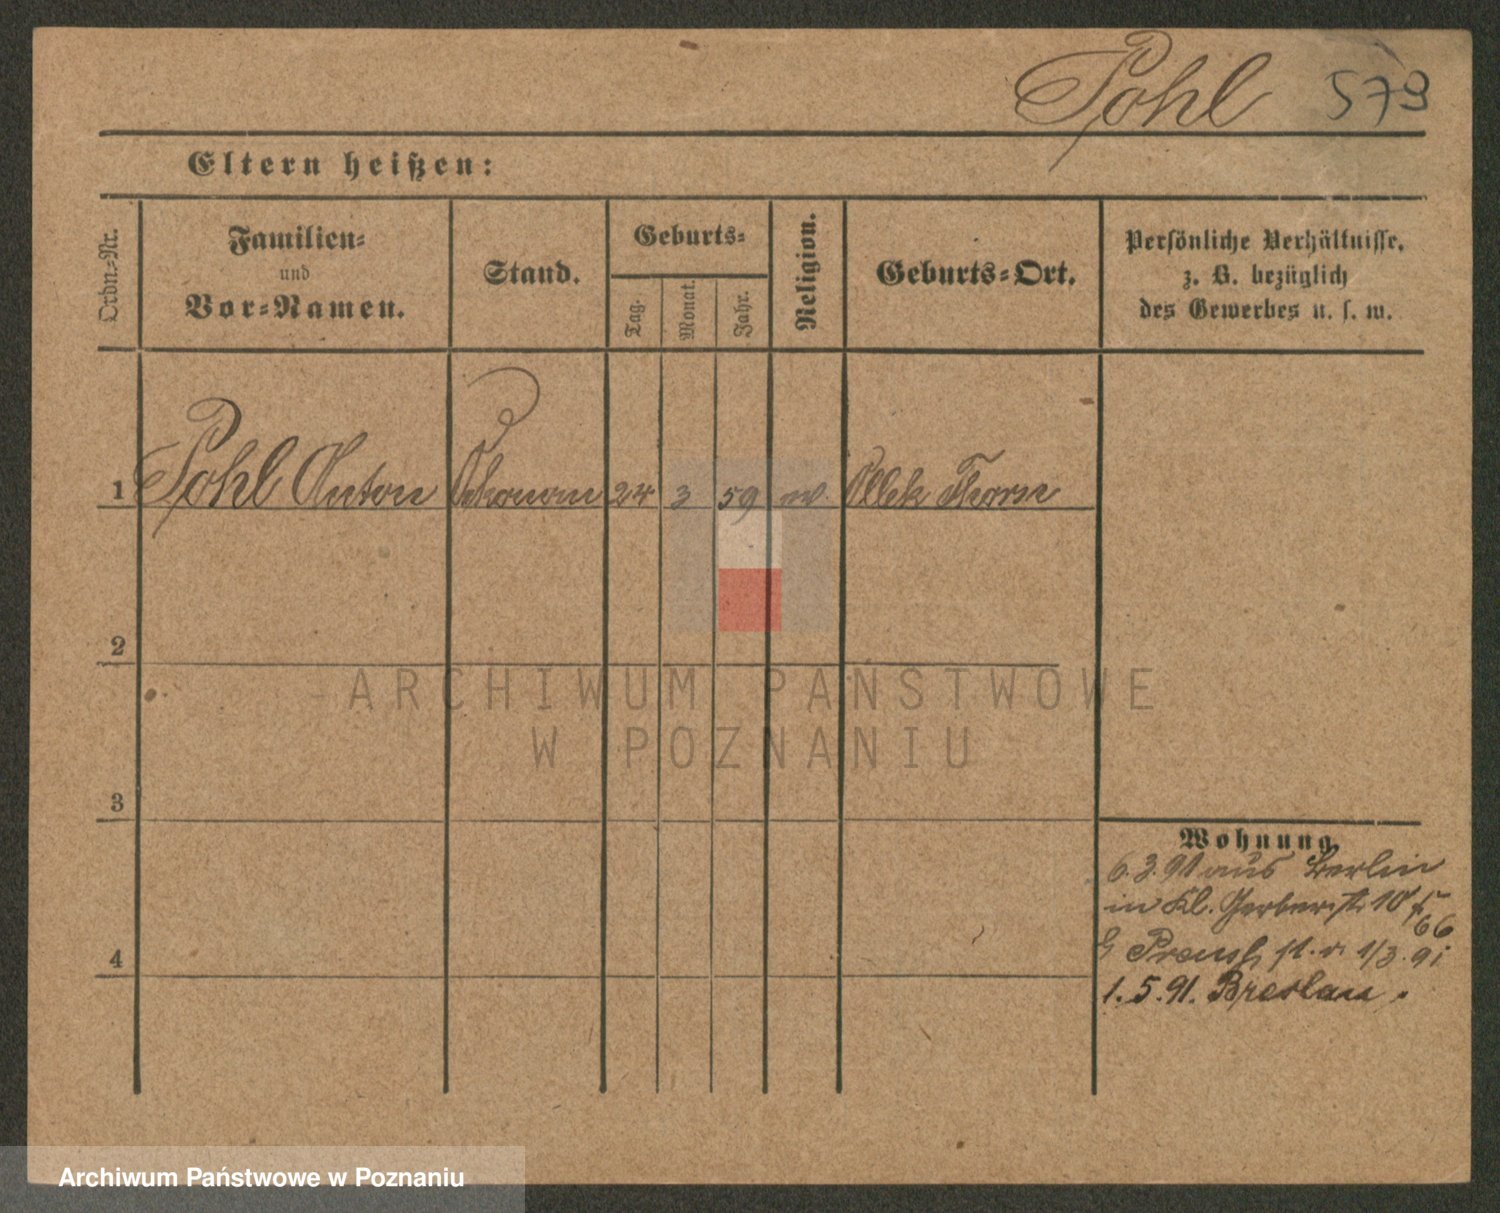 Pohl 579
Eltern heißen:
Ordn.-Nr.
Familien-
und
Vor-Namen.
Stand.
Geburts-
Tag.
Monat.
Jahr.
Religion.
Geburts-Ort.
Persönliche Verhältnisse,
z. B. bezüglich
des Gewerbes u. s. w.
1 Pohl Anton Oekonom 24 3 59 Ollek Thorn
2
ARCHIWUM PAŃSTWOWE
W POZNANIU
3
Wohnung.
6.3.91 aus Berlin
in Kl. Gerberst. 10
66
4
1/3.91
1.5.91. Breslau.
Archiwum Państwowe w Poznaniu